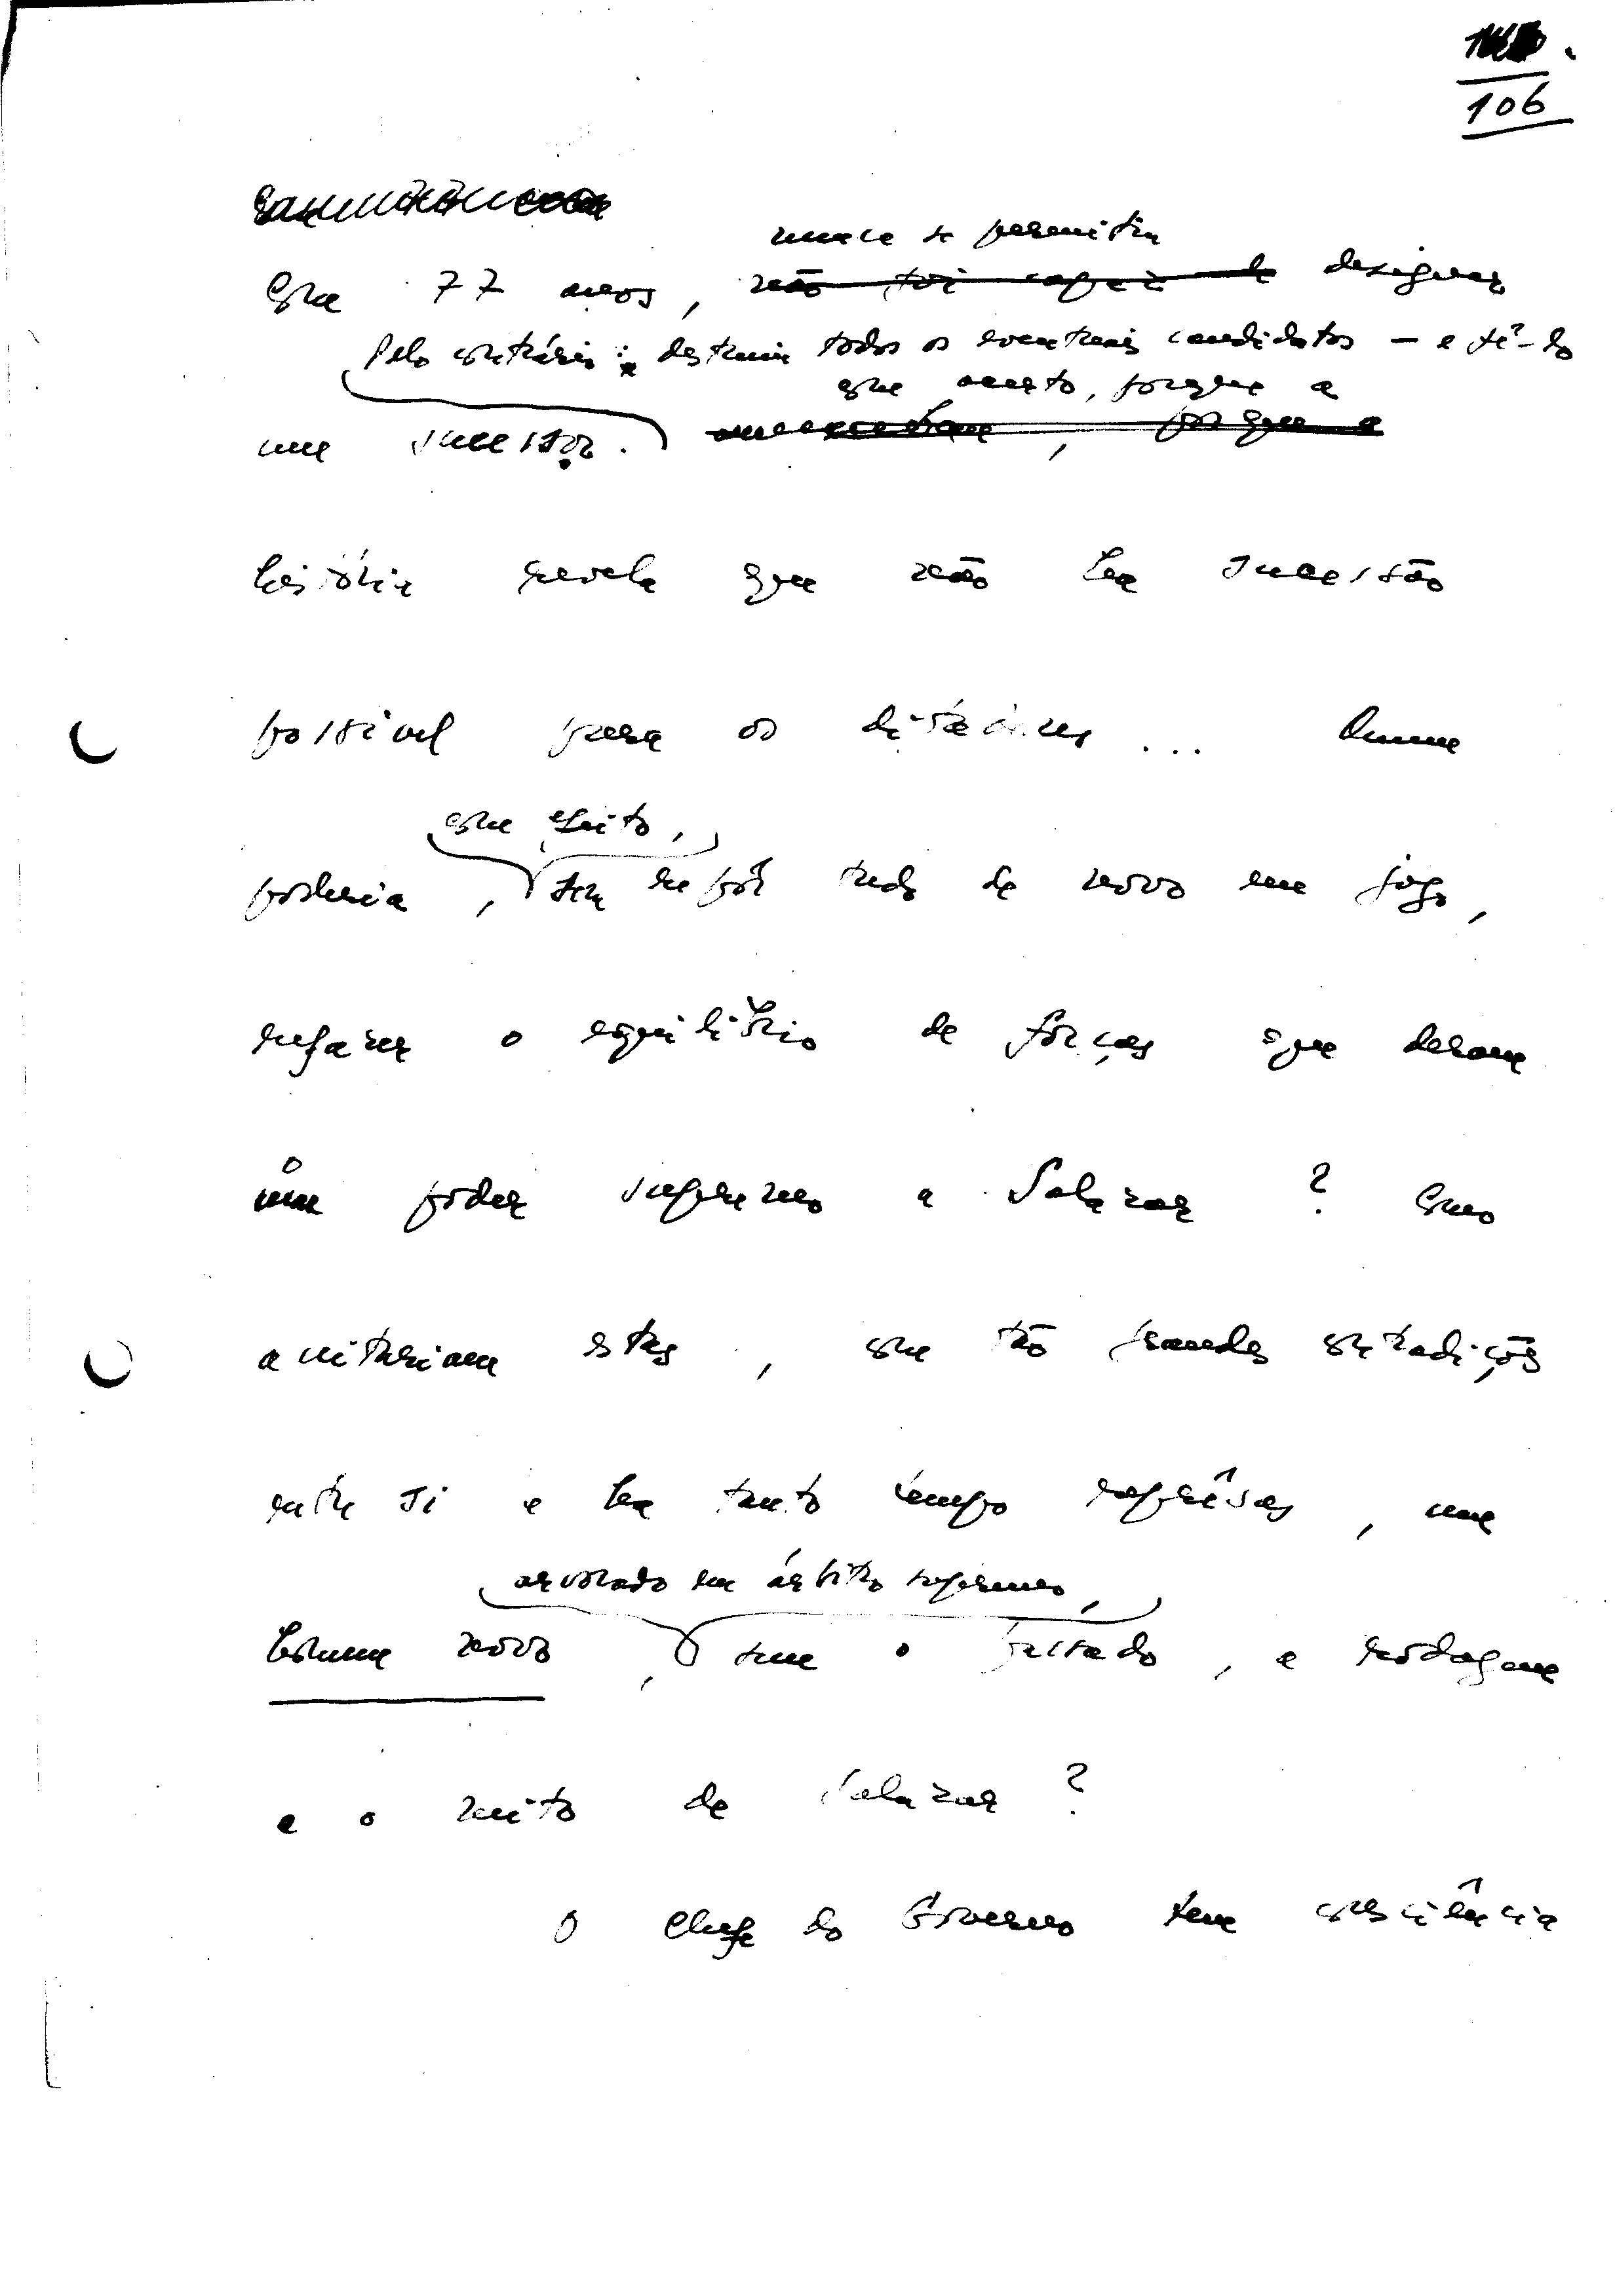 106
nunca se permitiu
Com 77 anos, não foi capaz de designar
Pelo contrário: destruiu todos os eventuais candidatos — e fê-lo
com acerto, porque a
um sucessor. , porque a
história revela que não há sucessão
possível para os ditadores... Quem
com efeito,
poderia, sem repôr tudo de novo em jogo,
refazer o equilíbrio de fôrças que deram
o poder supremo a Salazar? Como
aceitariam estas, com tão grandes contradições
entre si e há tanto tempo reprêsas, um
arvorado em árbitro supremo,
homem novo, sem o passado, a rodagem
e o mito de Salazar?
O chefe do Governo tem consciência